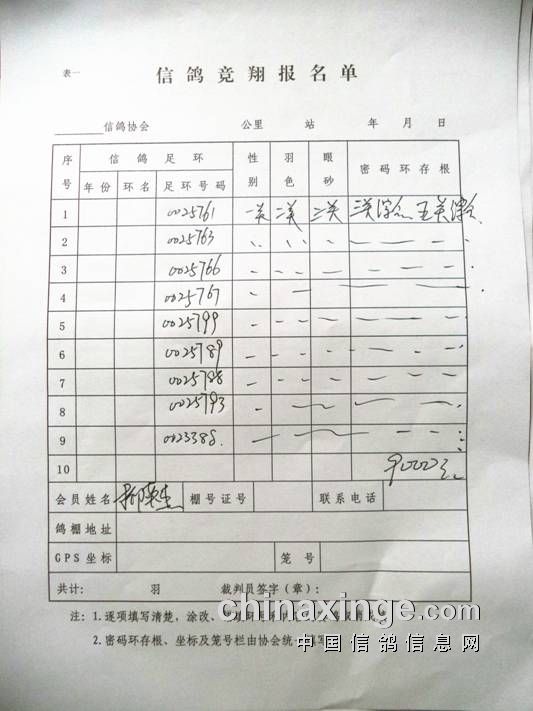 表一
信鸽竞翔报名单
信鸽协会 公里 站 年 月 日
序号 信鸽足环 性别 羽色 眼砂 密码环存根
年份 环名 足环号码
1 0025761
2 0025763
3 0025766
4 0025767
5 0025799
6 0025789
7 0025788
8 0025793
9 0023388
10
会员姓名 棚号证号 联系电话
鸽棚地址
GPS坐标 笼号
共计: 羽 裁判员签字(章):
注: 1.逐项填写清楚,涂改、
2.密码环存根、坐标及笼号栏由协会统一填写
chinaxinge.com
中国信鸽信息网